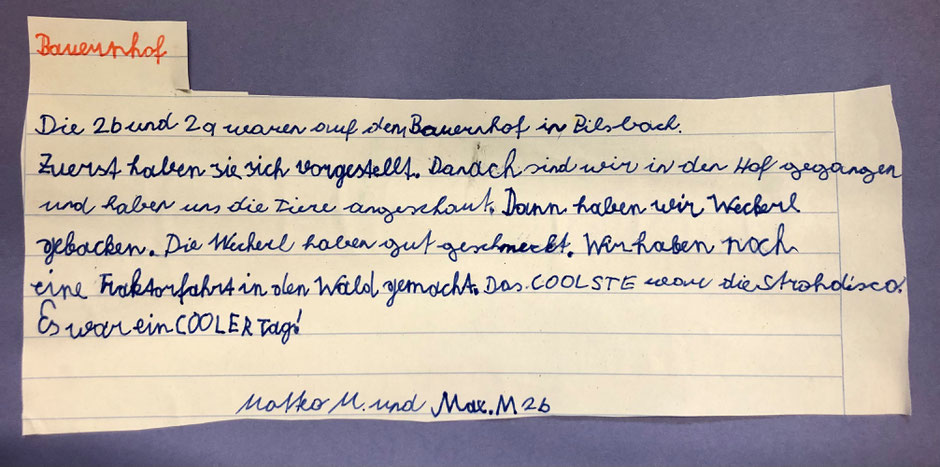 Bauernhof
Die 2b und 2a waren auf dem Bauernhof in Bilsbach.
Zuerst haben sie sich vorgestellt. Danach sind wir in den Hof gegangen
und haben uns die Tiere angeschaut. Dann haben wir Weckerl
gebacken. Die Weckerl haben gut geschmeckt. Wir haben noch
eine Traktorfahrt in den Wald gemacht. Das COOLSTE war die Strohdisco.
Es war ein COOLER Tag!
M. und Max. M 2b